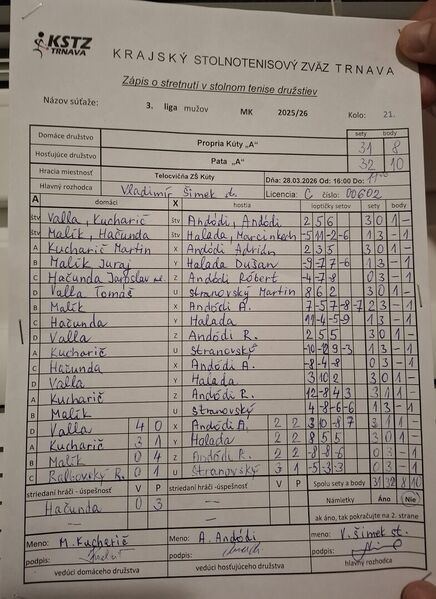 KSTZ
TRNAVA
KRAJSKÝ STOLNOTENISOVÝ ZVÄZ TRNAVA
Zápis o stretnutí v stolnom tenise družstiev
Názov súťaže: 3. liga mužov MK 2025/26 Kolo: 21.
sety body
Domáce družstvo Propria Kúty „A" 31 8
Hosťujúce družstvo Pata „A" 32 10
Hracia miestnosť Telocvičňa ZŠ Kúty Dňa: 28.03.2026 Od: 16:00 Do:
Hlavný rozhodca Vladimír Šimek st. Licencia: C číslo: 00602
A domáci X hostia loptičky setov sety body
štv Valla, Kucharič štv Andódi, Andódi 2 5 6 3 0 1 -
štv Malík, Hačunda štv Halada, -5 11 -2 -6 1 3 - 1
A Kucharič Martin X Andódi Adrián 2 3 5 3 0 1 -
B Malík Juraj Y Halada Dušan -9 -7 7 -6 1 3 - 1
C Hačunda Jaroslav Z Andódi Róbert -4 -7 -8 0 3 - 1
D Valla Tomáš U Stranovský Martin 8 6 2 3 0 1 -
B Malík X Andódi A. 2 3 - 1
C Hačunda Y Halada 11 -4 -5 -9 1 3 - 1
D Valla Z Andódi R. 2 5 5 3 0 1 -
A Kucharič U Stranovský 1 3 - 1
C Hačunda X Andódi A. -8 -4 -8 0 3 - 1
D Valla Y Halada 3 10 2 3 0 1 -
A Kucharič Z Andódi R. -12 8 4 3 3 1 1 -
B Malík U Stranovský 4 -8 -6 -6 1 3 - 1
D Valla 4 0 X Andódi A. 2 2 3 10 -8 7 3 1 1 -
A Kucharič 3 1 Y Halada 2 2 8 5 5 3 0 1 -
B Malík 0 4 Z Andódi R. 2 2 -8 -8 -6 0 3 - 1
C R. 0 1 U Stranovský 3 1 -5 -3 -3 0 3 - 1
striedaní hráči - úspešnosť V P striedaní hráči - úspešnosť V P Spolu sety a body 31 32 8 10
Hačunda 0 3 — Námietky Áno Nie
— — ak áno, tak pokračujte na 2. strane
Meno: M. Kucharič Meno: A. Andódi meno: V. Šimek st.
podpis: podpis: podpis:
vedúci domáceho družstva vedúci hosťujúceho družstva hlavný rozhodca